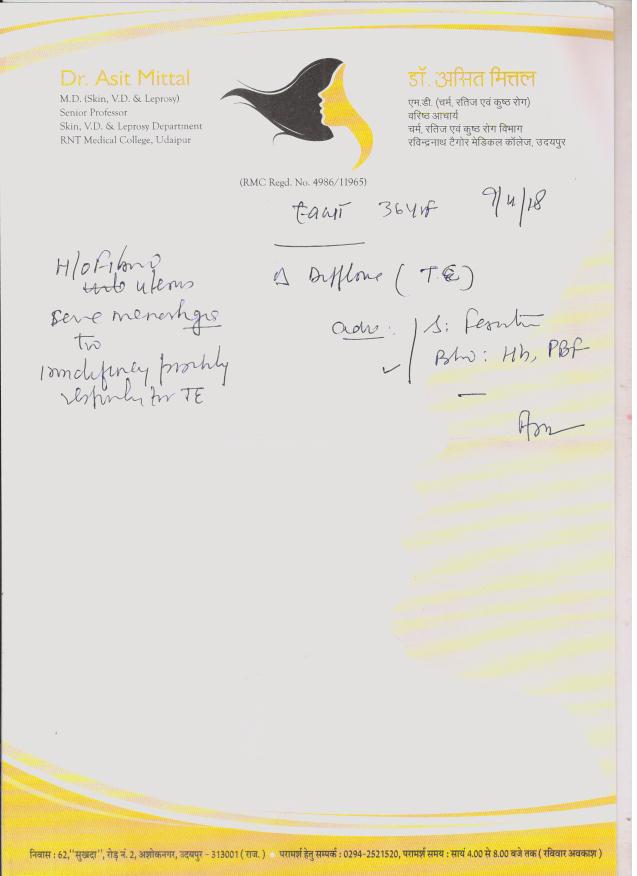 Dr. Asit Mittal
M.D. (Skin, V.D. & Leprosy)
Senior Professor
Skin, V.D. & Leprosy Department
RNT Medical College, Udaipur
डॉ. असित मित्तल
एम.डी. (चर्म, रतिज एवं कुष्ठ रोग)
वरिष्ठ आचार्य
चर्म, रतिज एवं कुष्ठ रोग विभाग
रविन्द्रनाथ टैगोर मेडिकल कॉलेज, उदयपुर
(RMC Regd. No. 4986/11965)
36y/f 9/4/18
H/o Fibroid
uterus
severe
possibly
for TE
Δ Diffuse (T.E)
Adv: S: Ferritin
Bld: Hb, PBF
निवास : 62,"सुखदा", रोड़ नं. 2, अशोकनगर, उदयपुर - 313001 ( राज. ) • परामर्श हेतु सम्पर्क : 0294-2521520, परामर्श समय : सायं 4.00 से 8.00 बजे तक ( रविवार अवकाश )